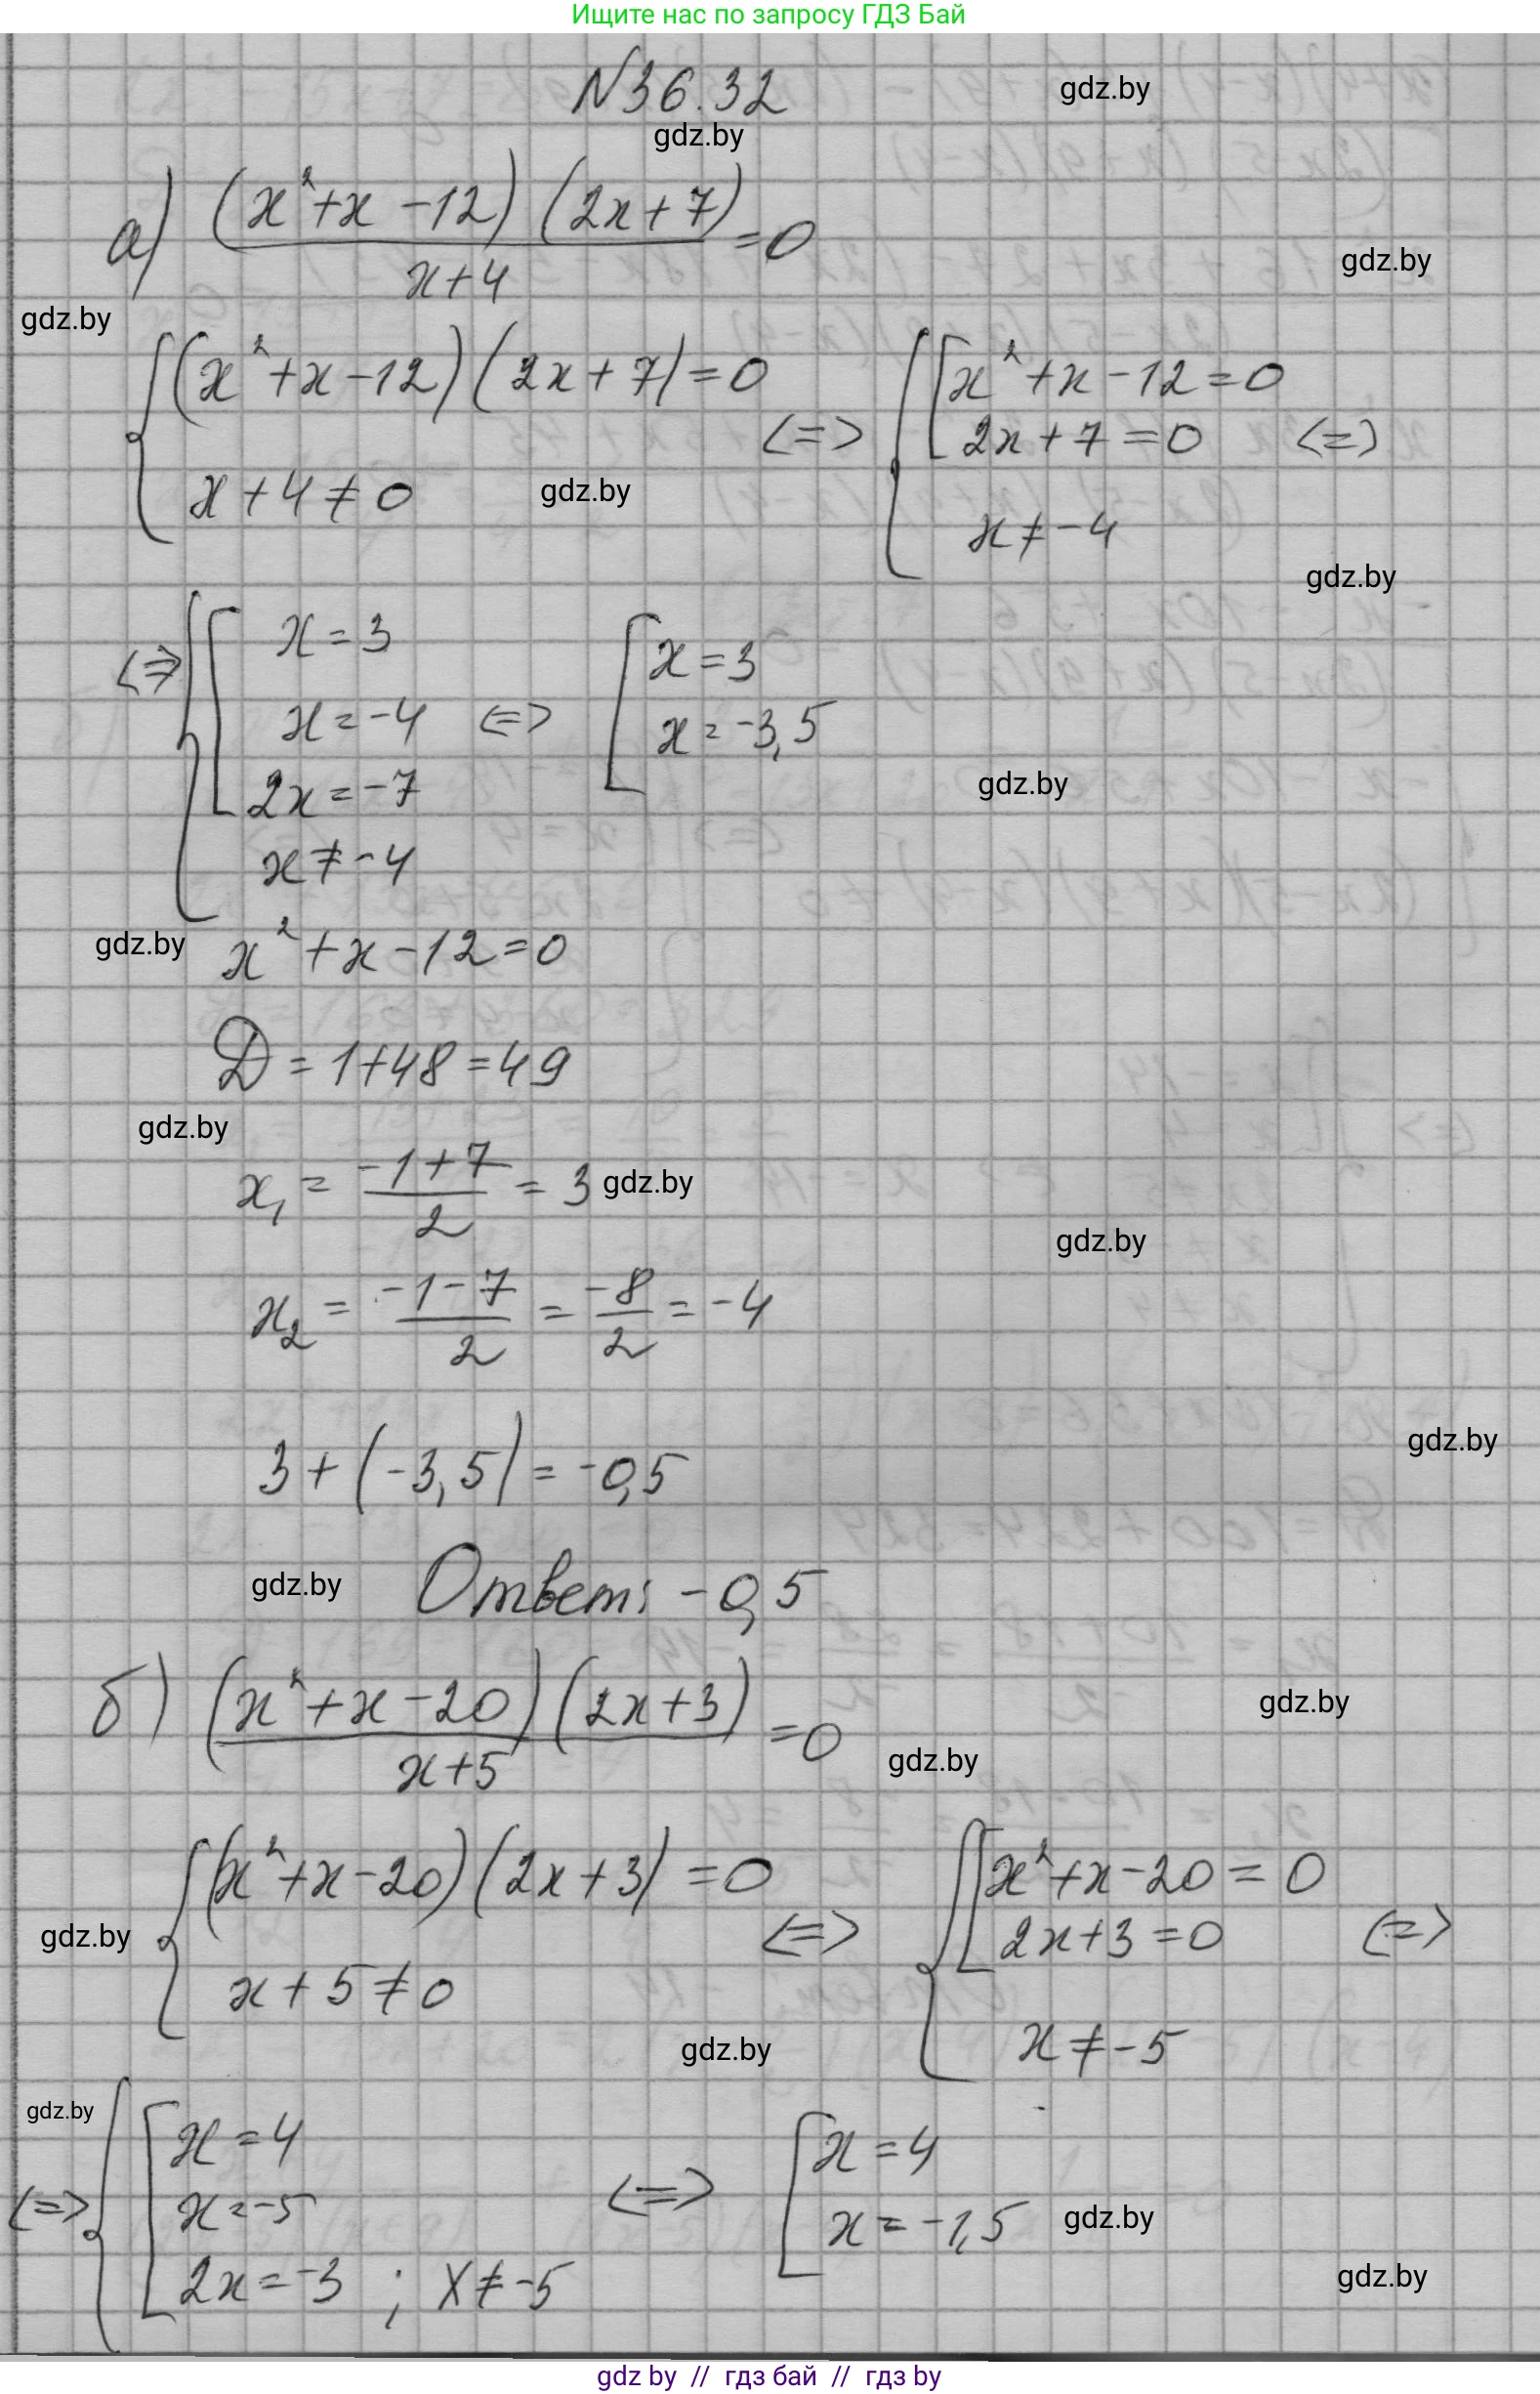 Ищите нас по запросу ГДЗ Бай
N36.32
gdz.by
gdz.by
а) (x²+x-12)(2x+7)/(x+4) =0
gdz.by
gdz.by
{(x²+x-12)(2x+7)=0 <=> {[x²+x-12=0
2x+7=0 <=>
x+4≠0
gdz.by
x≠-4
gdz.by
<=> {[x=3
x=-4 <=> [x=3
x=-3,5
2x=-7
gdz.by
x≠-4
gdz.by
x²+x-12=0
D=1+48=49
gdz.by
x₁=(-1+7)/2=3
gdz.by
gdz.by
x₂=(-1-7)/2=-8/2=-4
gdz.by
3+(-3,5)=-0,5
gdz.by
Ответ: -0,5
б) (x²+x-20)(2x+3)/(x+5) =0
gdz.by
gdz.by
{(x²+x-20)(2x+3)=0 <=> {[x²+x-20=0
2x+3=0 <=>
gdz.by
x+5≠0
x≠-5
gdz.by
gdz.by
<=> {[x=4
x=-5
2x=-3 ; x≠-5
<=> [x=4
x=-1,5
gdz.by
gdz.by
gdz by // гдз бай // гдз by